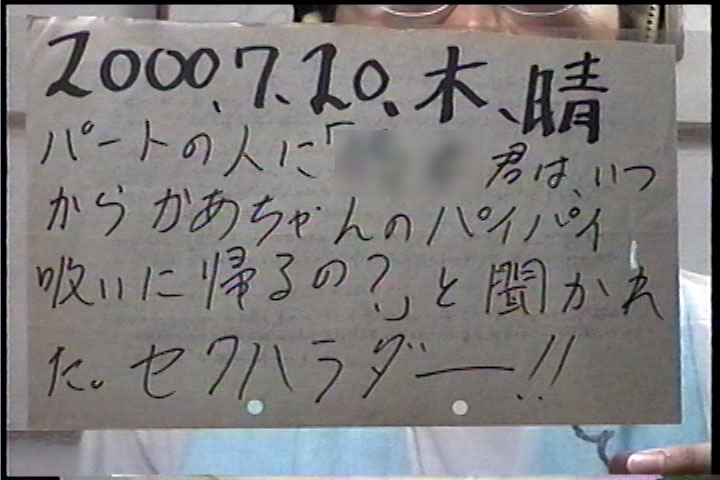 2000.7.20、木、晴
パートの人に「 君は、いつ
からかあちゃんのパイパイ
吸いに帰るの?」と聞かれ
た。セクハラダー!!